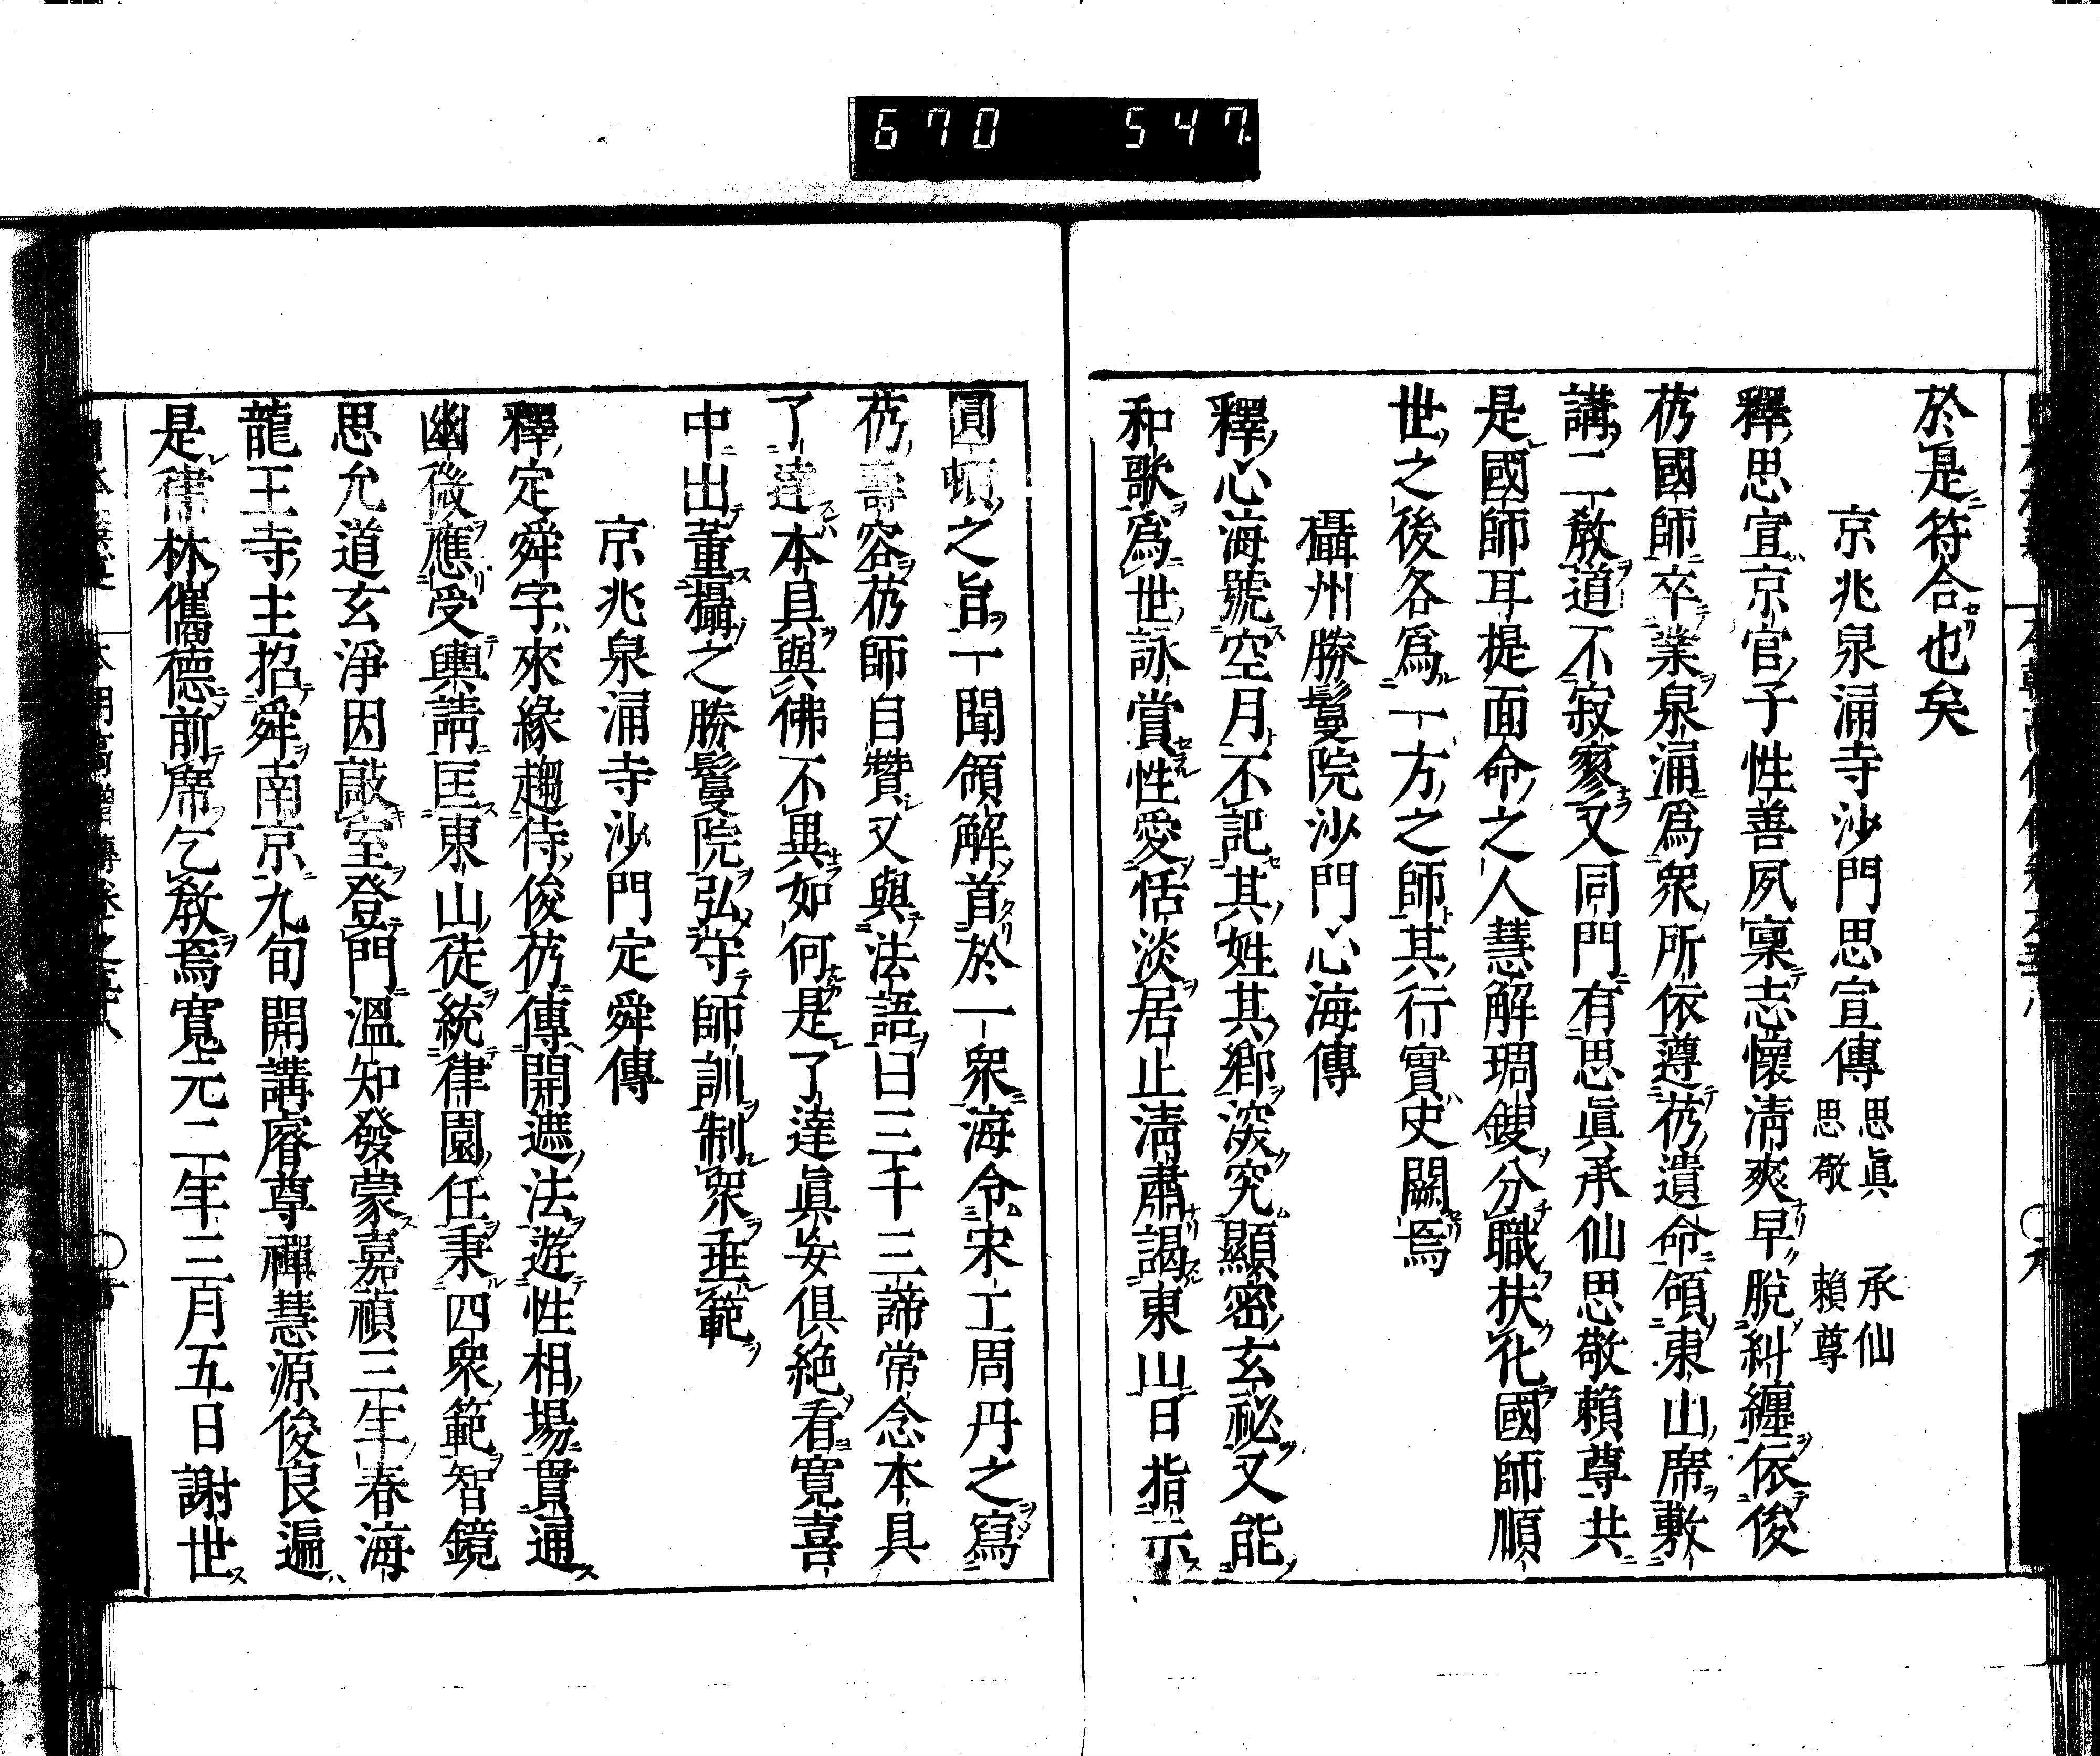 670 547.
於是符合也矣
京兆泉涌寺沙門思宣傳 思眞 承仙 思敬 賴尊
釋思宣京官子性善夙稟志懷淸爽早脫糾纏依俊
芿國師卒業泉涌爲衆所依遵芿遺命領東山席敷
講二教道不寂寥又同門有思眞承仙思敬賴尊共
是國師耳提面命之人慧解琱鎪分職扶化國師順
世之後各爲一方之師其行實史闕焉
攝州勝鬘院沙門心海傳
釋心海號空月不記其姓其鄉深究顯密玄祕又能
和歌爲世詠賞性愛恬淡居止淸肅謁東山日指示
圓頓之旨一聞領解首於一衆海令宋工周丹之寫
芿壽容芿師自贊又與法語曰三千三諦常念本具
了達本具與佛不異如何是了達眞妄俱絶看寬喜
中出董攝之勝鬘院弘守師訓制衆垂範
京兆泉涌寺沙門定舜傳
釋定舜字來緣趨侍俊芿傳開遮法遊性相場貫通
幽微應受輿請匡東山徒統律園任秉四衆範智鏡
思允道玄淨因敲室登門溫知發蒙嘉禎三年春海
龍王寺主招舜南京九旬開講睿尊禪慧源俊良遍
是律林儁德前席乞教焉寬元二年三月五日謝世